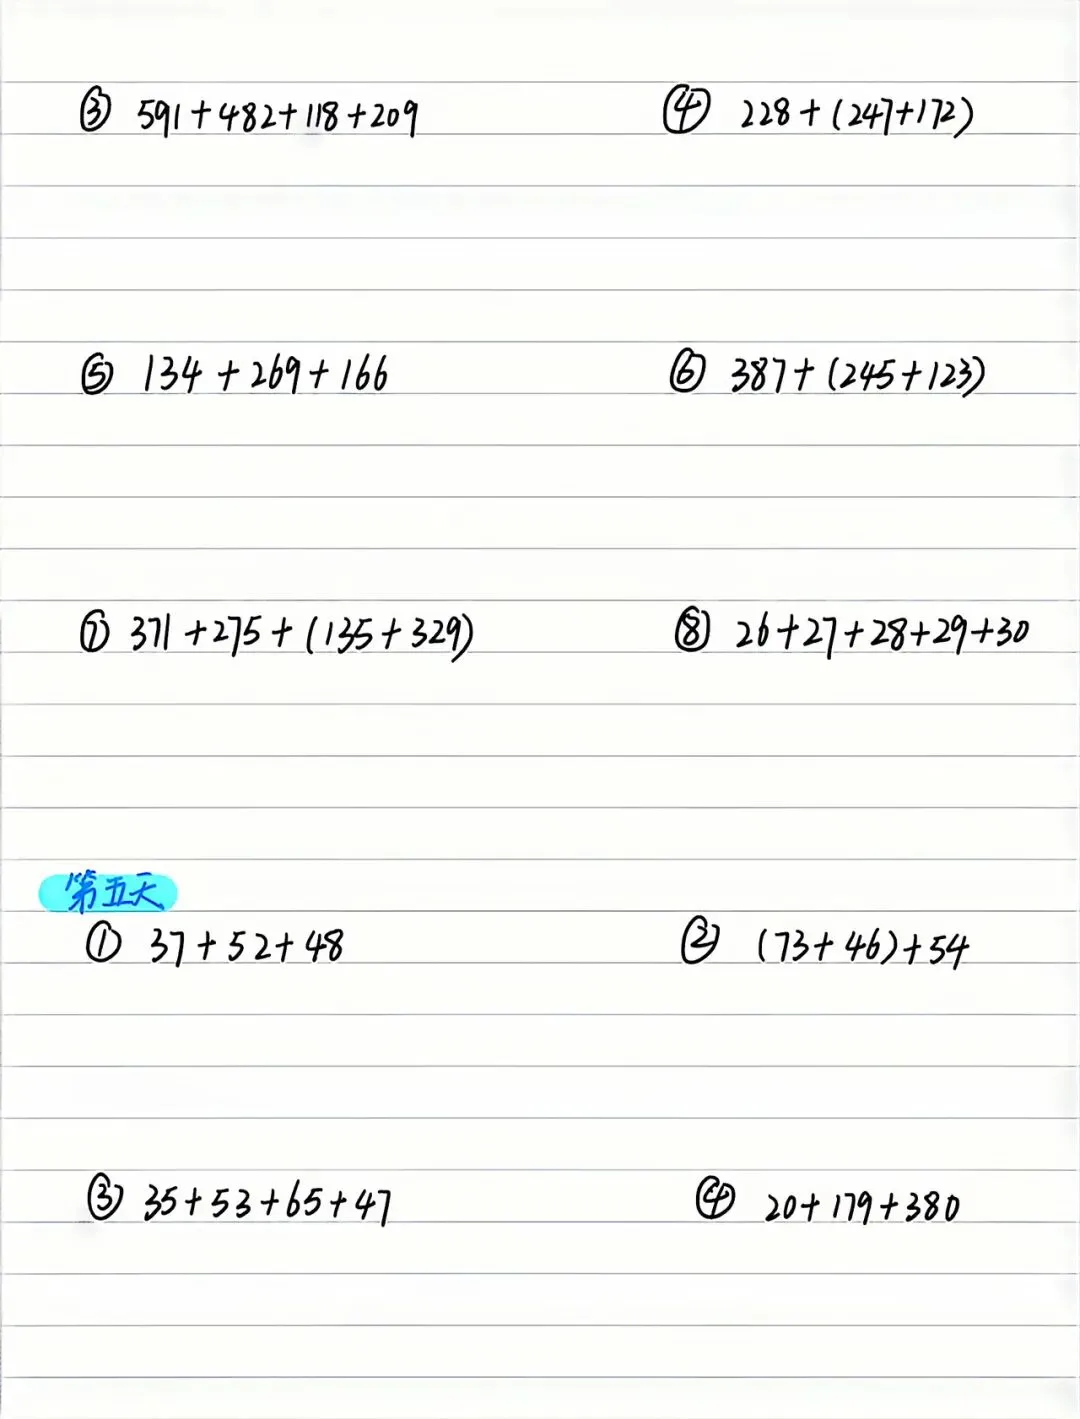 ③ 591+482+118+209 ④ 228+(247+172)
⑤ 134+269+166 ⑥ 387+(245+123)
⑦ 371+275+(135+329) ⑧ 26+27+28+29+30
第五天
① 37+52+48 ② (73+46)+54
③ 35+53+65+47 ④ 20+179+380